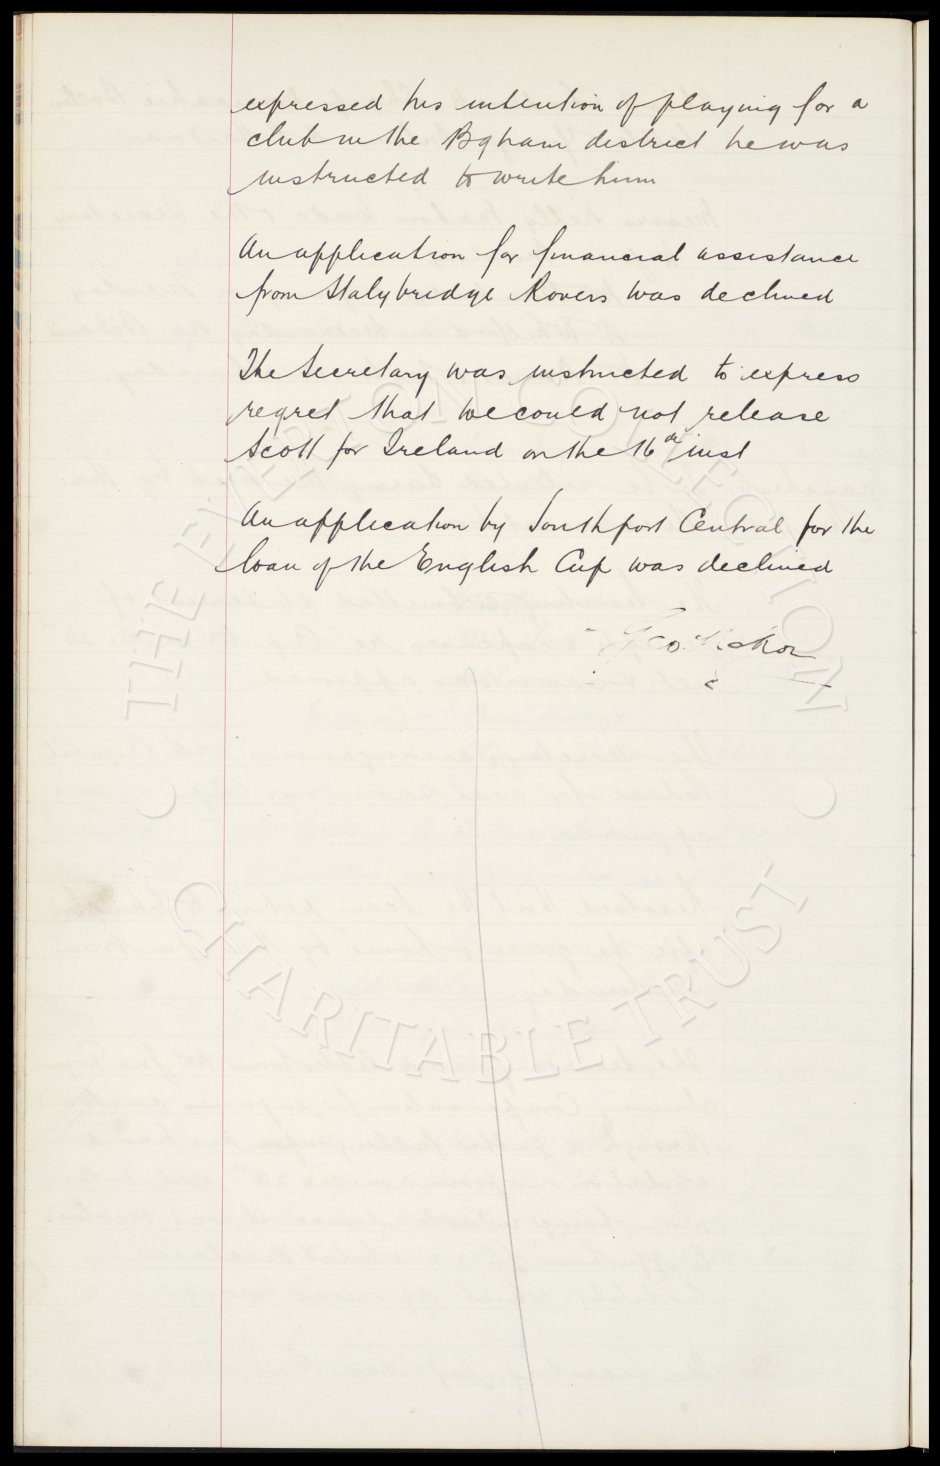 expressed his intention of playing for a
club in the Bgham district he was
instructed to write him
An application for financial assistance
from Stalybridge Rovers was declined
The Secretary was instructed to express
regret that we could not release
Scott for Ireland on the 16th inst
An application by Southport Central for the
loan of the English Cup was declined
Geo.
THE EVERTON COLLECTION
CHARITABLE TRUST